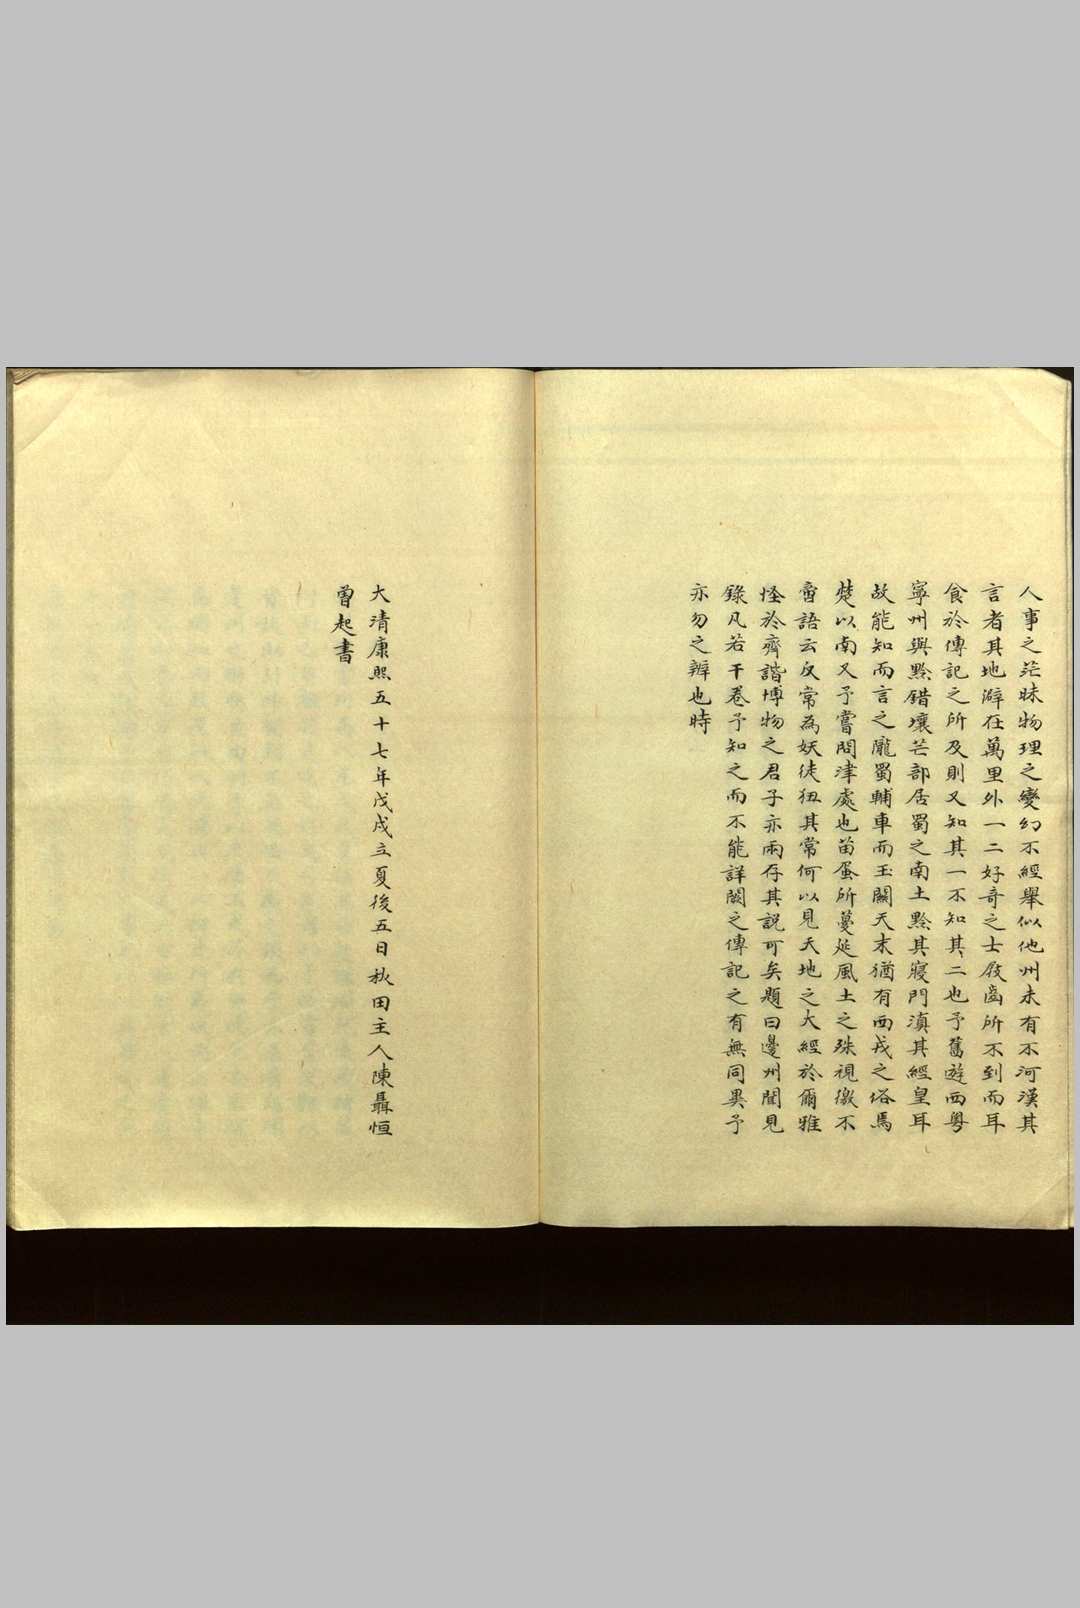 人事之茫昧物理之變幻不經舉似他州未有不河漢其
言者其地澼在萬里外一二好奇之士屐齒所不到而耳
食於傳記之所及則又知其一不知其二也予舊遊西粵
寧州與黔錯壤芒部居蜀之南土黔其寢門滇其經皇耳
故能知而言之隴蜀輔車而玉關天末猶有西戎之俗焉
楚以南又予嘗問津處也苗蛋所蔓延風土之殊視徼不
啻語云反常為妖徒狃其常何以見天地之大經於爾雅
怪於齊諧博物之君子亦兩存其説可矣題曰邊州聞見
錄凡若干卷予知之而不能詳闕之傳記之有無同異予
亦勿之辨也時
大清康熙五十七年戊戌立夏後五日秋田主人陳聶恒
曾起書